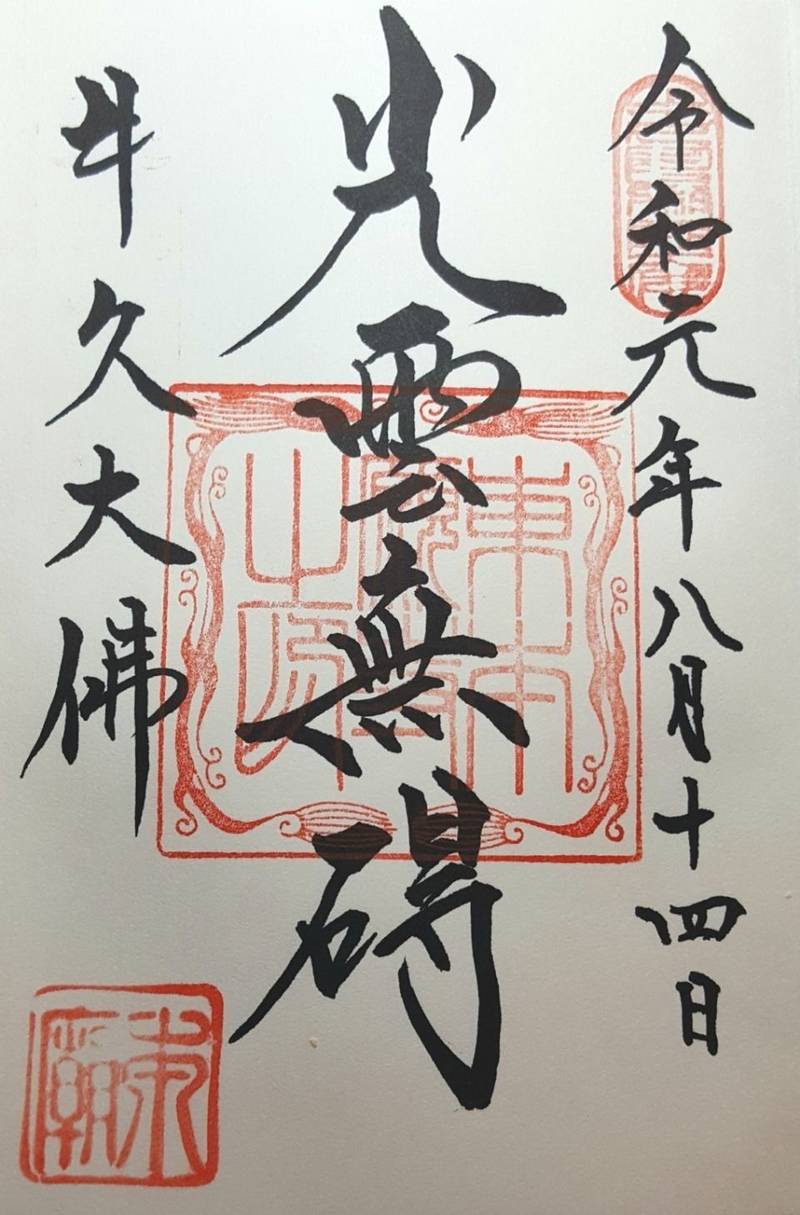 令和元年八月十四日
光雲無碍
牛久大佛